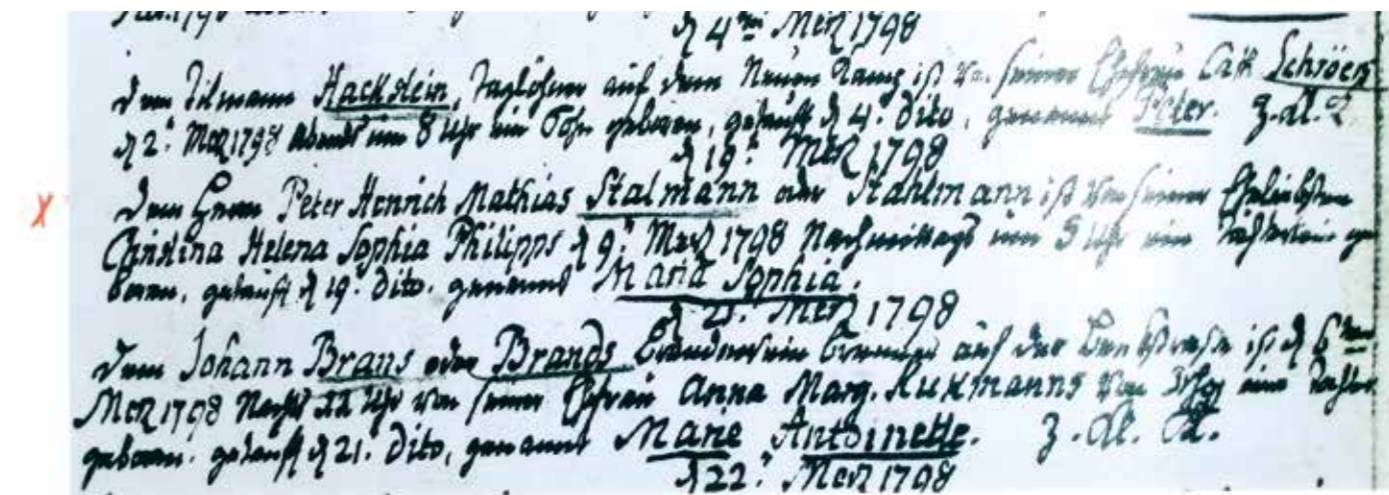 d 4ten Merz 1798
Dem Tilmann Hackstein, Taglöhner auf dem Neuen Kamp ist von seiner Ehefrau Cath Schröers
d 2. Merz 1798 Abends um 8 Uhr ein Sohn geboren, getauft d 4. dito, genannt Peter.
d 19. Merz 1798
Dem Herrn Peter Henrich Mathias Stalmann oder Stahlmann ist von seiner Eheliebsten
Christina Helena Sophia Philipps d 9. Merz 1798 Nachmittags um 5 Uhr ein Töchterlein ge
boren, getauft d 19. dito. genannt Maria Sophia.
d 21. Merz 1798
Dem Johann Braus oder Brands auf der ist d 6ten
Merz 1798 Nachts Uhr von seiner Ehefrau Anna Marg. von eine Tochter
geboren. getauft d 21. dito, genannt Marie Antoinette.
d 22. Merz 1798